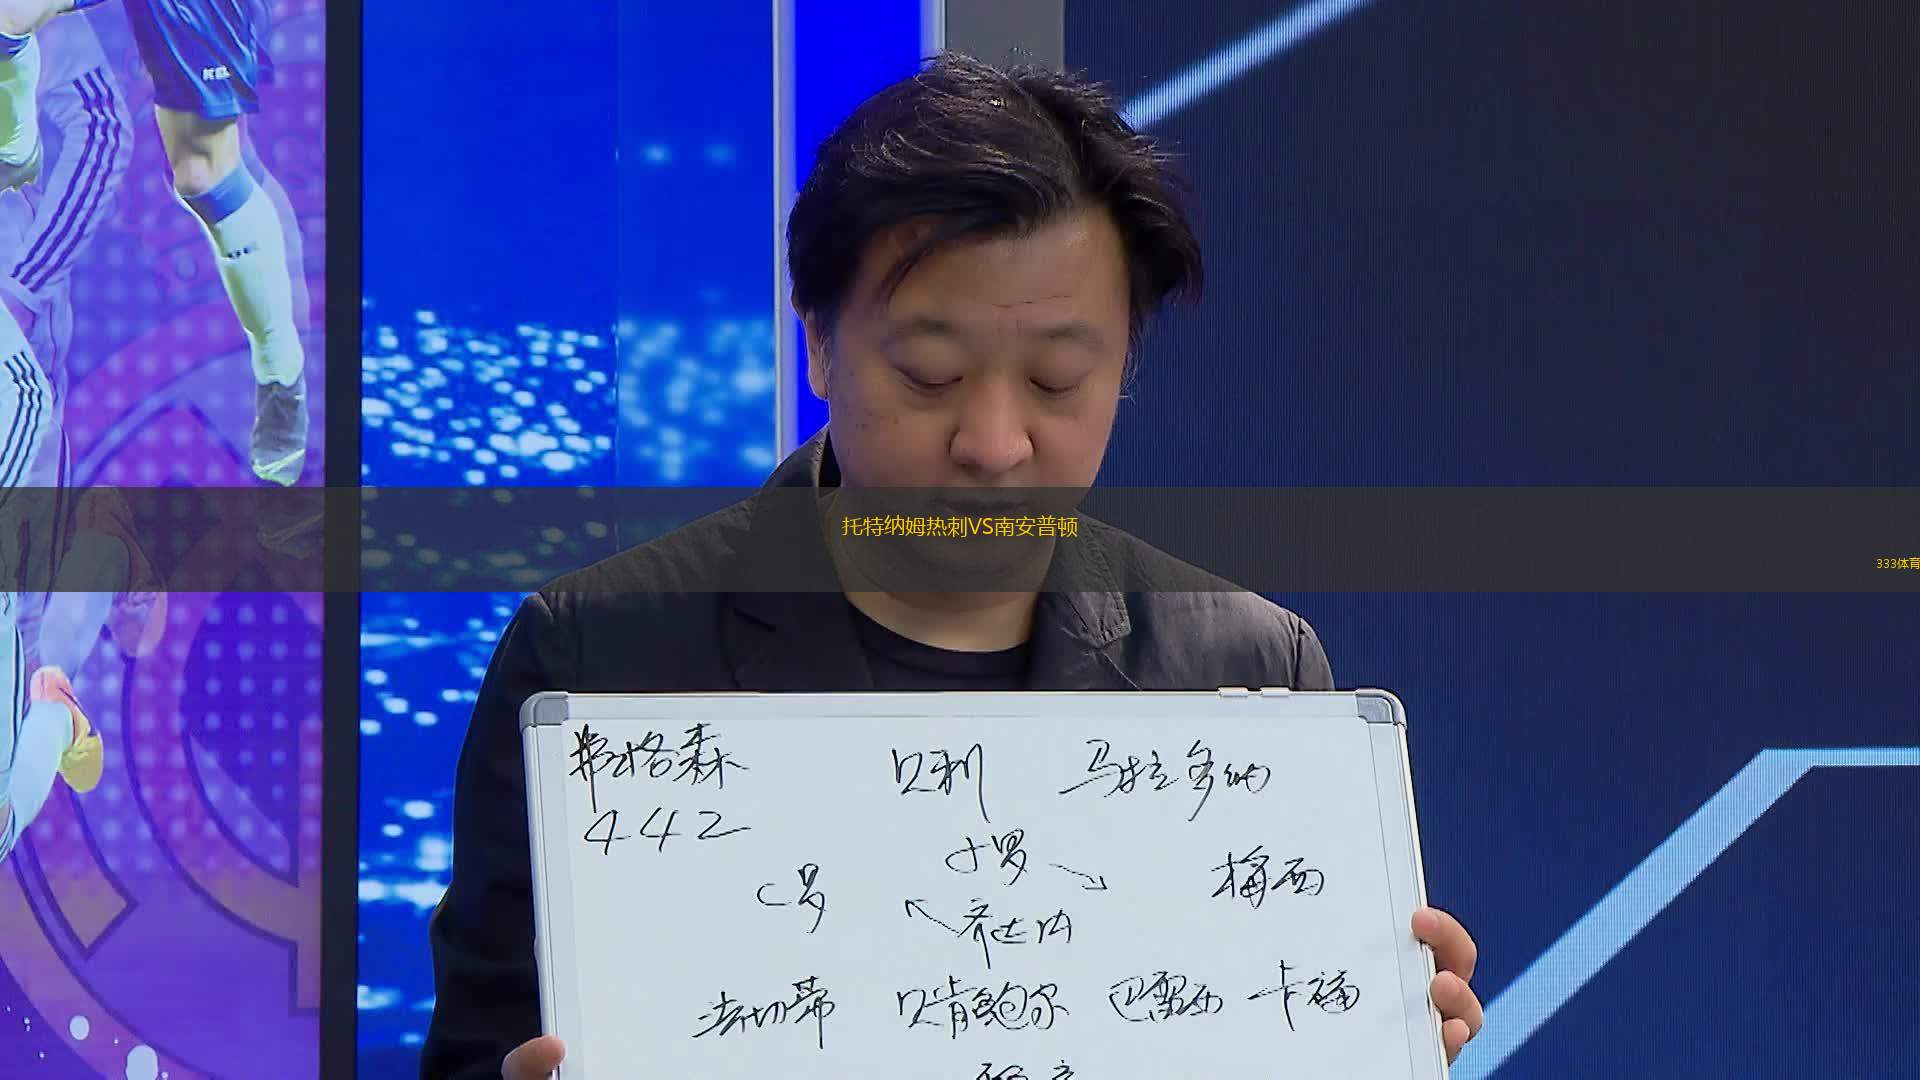 托特纳姆热刺VS南安普顿
333体育
弗格森 贝利 马拉多纳
442
小罗
C罗 梅西
齐达内
法切蒂 贝肯鲍尔 巴雷西 卡福